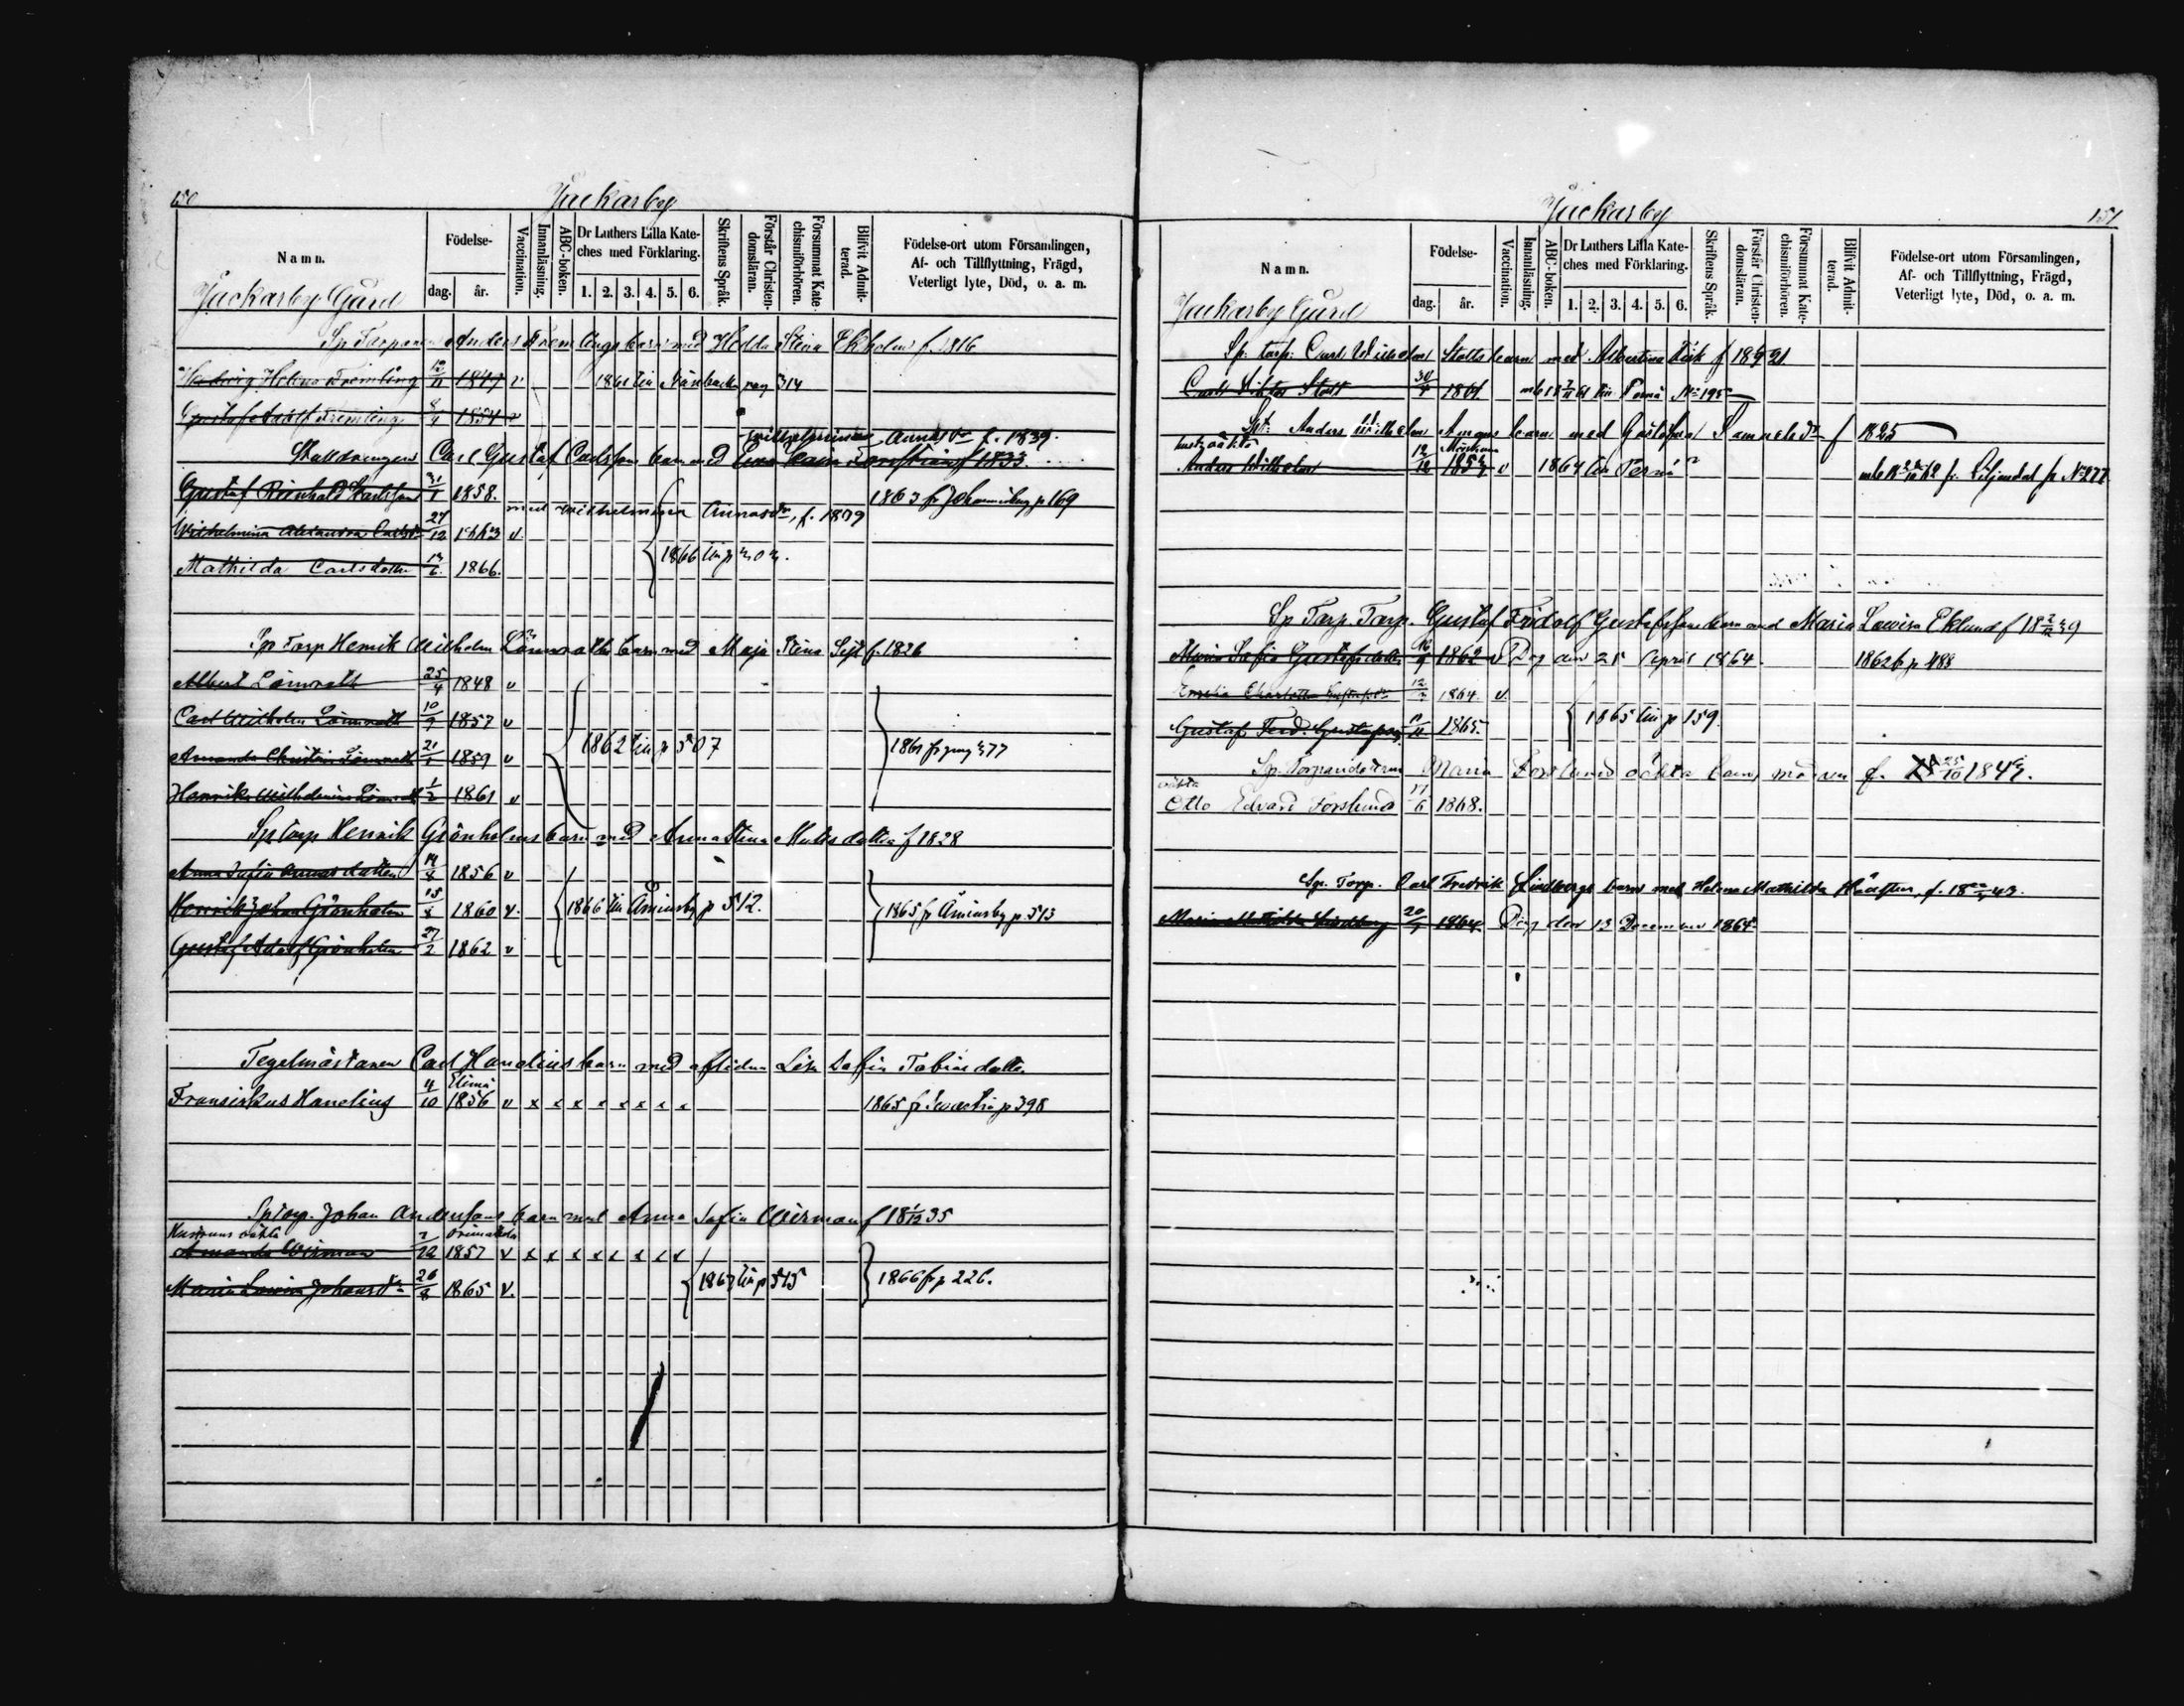 150
Jackarby
Namn.
Födelse-
dag.
år.
Vaccination.
Innanläsning.
ABC-boken.
Dr Luthers Lilla Kate-
ches med Förklaring.
1. 2. 3. 4. 5. 6.
Skriftens Språk.
Förstår Christen-
domsläran.
Försummat Kate-
chismiförhören.
Blifvit Admit-
terad.
Födelse-ort utom Församlingen,
Af- och Tillflyttning, Frägd,
Veterligt lyte, Död, o. a. m.
Jackarby Gård
Sp Torparen Anders Fremlings barn med Hedda Stina Ekholm f. 1816
Hedvig Helena Fremling 12/11 1847 v 1861 till Näsebacka pag 314
Gustaf Adolf Fremling 8/4 1854 v
Wilhelmina Annasdr f. 1839.
Stalldrengen Carl Gustaf Carlssons barn med 1833
Gustaf Reinhold Carlsson 31/1 1858. 1863 fr Johannisberg p 169
med Wilhelmina Annasdr, f. 1839
Wilhelmina Alexandra Carlsdr 27/12 1863 v.
Mathilda Carlsdotter 13/6 1866. 1866 till p 202.
Sp Torp Henrik Wilhelm Lönnroths barn med Maja Stina Sejt f. 1826
Albert Lönnroth 25/4 1848 v
Carl Wilhelm Lönnroth 10/9 1857 v
Amanda Christina Lönnroth 21/1 1859 v 1862 till p 507 1861 fr pag 377
Henrika Wilhelmina Lönnroth 1/2 1861 v
Sp torp Henrik Grönholms barn med Anna Stina Mattsdotter f 1828
Anna Sofia Annasdotter 14/8 1856 v
Henrik Johan Grönholm 15/8 1860 v. 1866 till Åminsby p 512. 1865 fr Åminsby p. 513
Gustaf Adolf Grönholm 27/2 1862 v
Tegelmästaren Carl Hanelius barn med aflidna Lisa Sofia Tobiasdotter
Elimä
Fransiskus Hanelius 4/10 1856 v x x x x x x x x 1865 fr p 398
Sp torp. Johan Anderssons barn med Anna Sofia Wirman f 18 1/12 35
Hustruns oäkta
Amanda Wirman 7/12 1857 v x x x x x x x x
Maria Lovisa Johansdr 26/8 1865 v. 1867 till p 515 1866 fr p 226.
Jackarby
151
Namn.
Födelse-
dag.
år.
Vaccination.
Innanläsning.
ABC-boken.
Dr Luthers Lilla Kate-
ches med Förklaring.
1. 2. 3. 4. 5. 6.
Skriftens Språk.
Förstår Christen-
domsläran.
Försummat Kate-
chismiförhören.
Blifvit Admit-
terad.
Födelse-ort utom Församlingen,
Af- och Tillflyttning, Frägd,
Veterligt lyte, Död, o. a. m.
Jackarby Gård
Sp. torp. Carl Wilhelm Stolts barn med Albertina
Carl Viktor Stolt 30/4 1861 till Pernå No 195
Spt. Anders Wilhelm barn med Gustafva Samuelsdr f 1825
hust. oäkta
Anders Wilhelm 12/12 v 1864 till Pernå fr. Liljendal No 277
Sp Torp. Torp. Gustaf Fridolf Gustafssons barn med Maria Lovisa Eklund f 18 2/12 39
Maria Sofia Gustafsdotter 16/9 1862 v Dog den 25 April 1864. 1862 fr p 488
Emelia Charlotta Gustafsdr 1864. v.
Gustaf Ferd. Gustafsson 1865. 1865 till p 159.
Sp. Torpardottern Maria Forslunds oäkta barn, modren f. 25/10 1845.
oäkta
Otto Edvard Forslund 17/6 1868.
Sp. Torp. Carl Fredrik Lindbergs barn med Helena Mathilda
Maria Mathilda Lindberg 20/7 1864. Dog den 13 December 1865